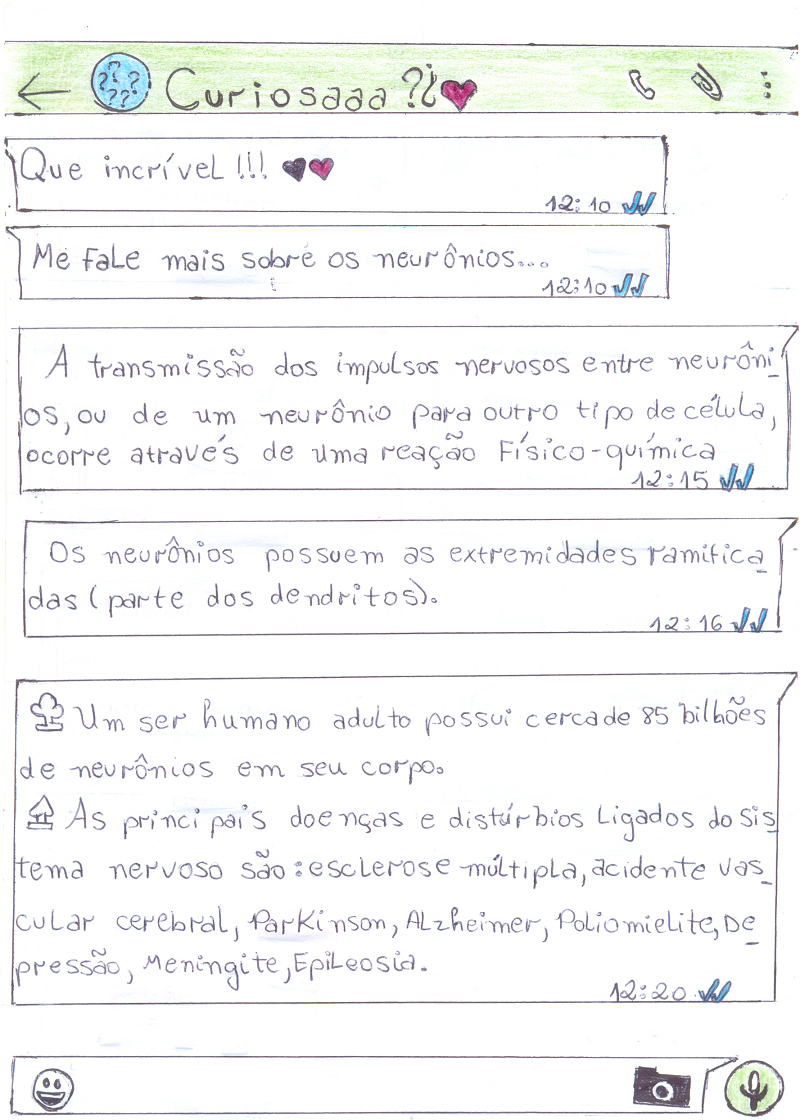 Curiosaaa ?¿
Que incrível !!!
12:10
Me fale mais sobre os neurônios...
12:10
A transmissão dos impulsos nervosos entre neurôni_
os, ou de um neurônio para outro tipo de célula,
ocorre através de uma reação Físico-química
12:15
Os neurônios possuem as extremidades ramifica_
das (parte dos dendritos).
12:16
Um ser humano adulto possui cerca de 85 bilhões
de neurônios em seu corpo.
As principais doenças e distúrbios Ligados do sis_
tema nervoso são: esclerose múltipla, acidente vas_
cular cerebral, Parkinson, Alzheimer, Poliomielite, De_
pressão, Meningite, Epileosia.
12:20